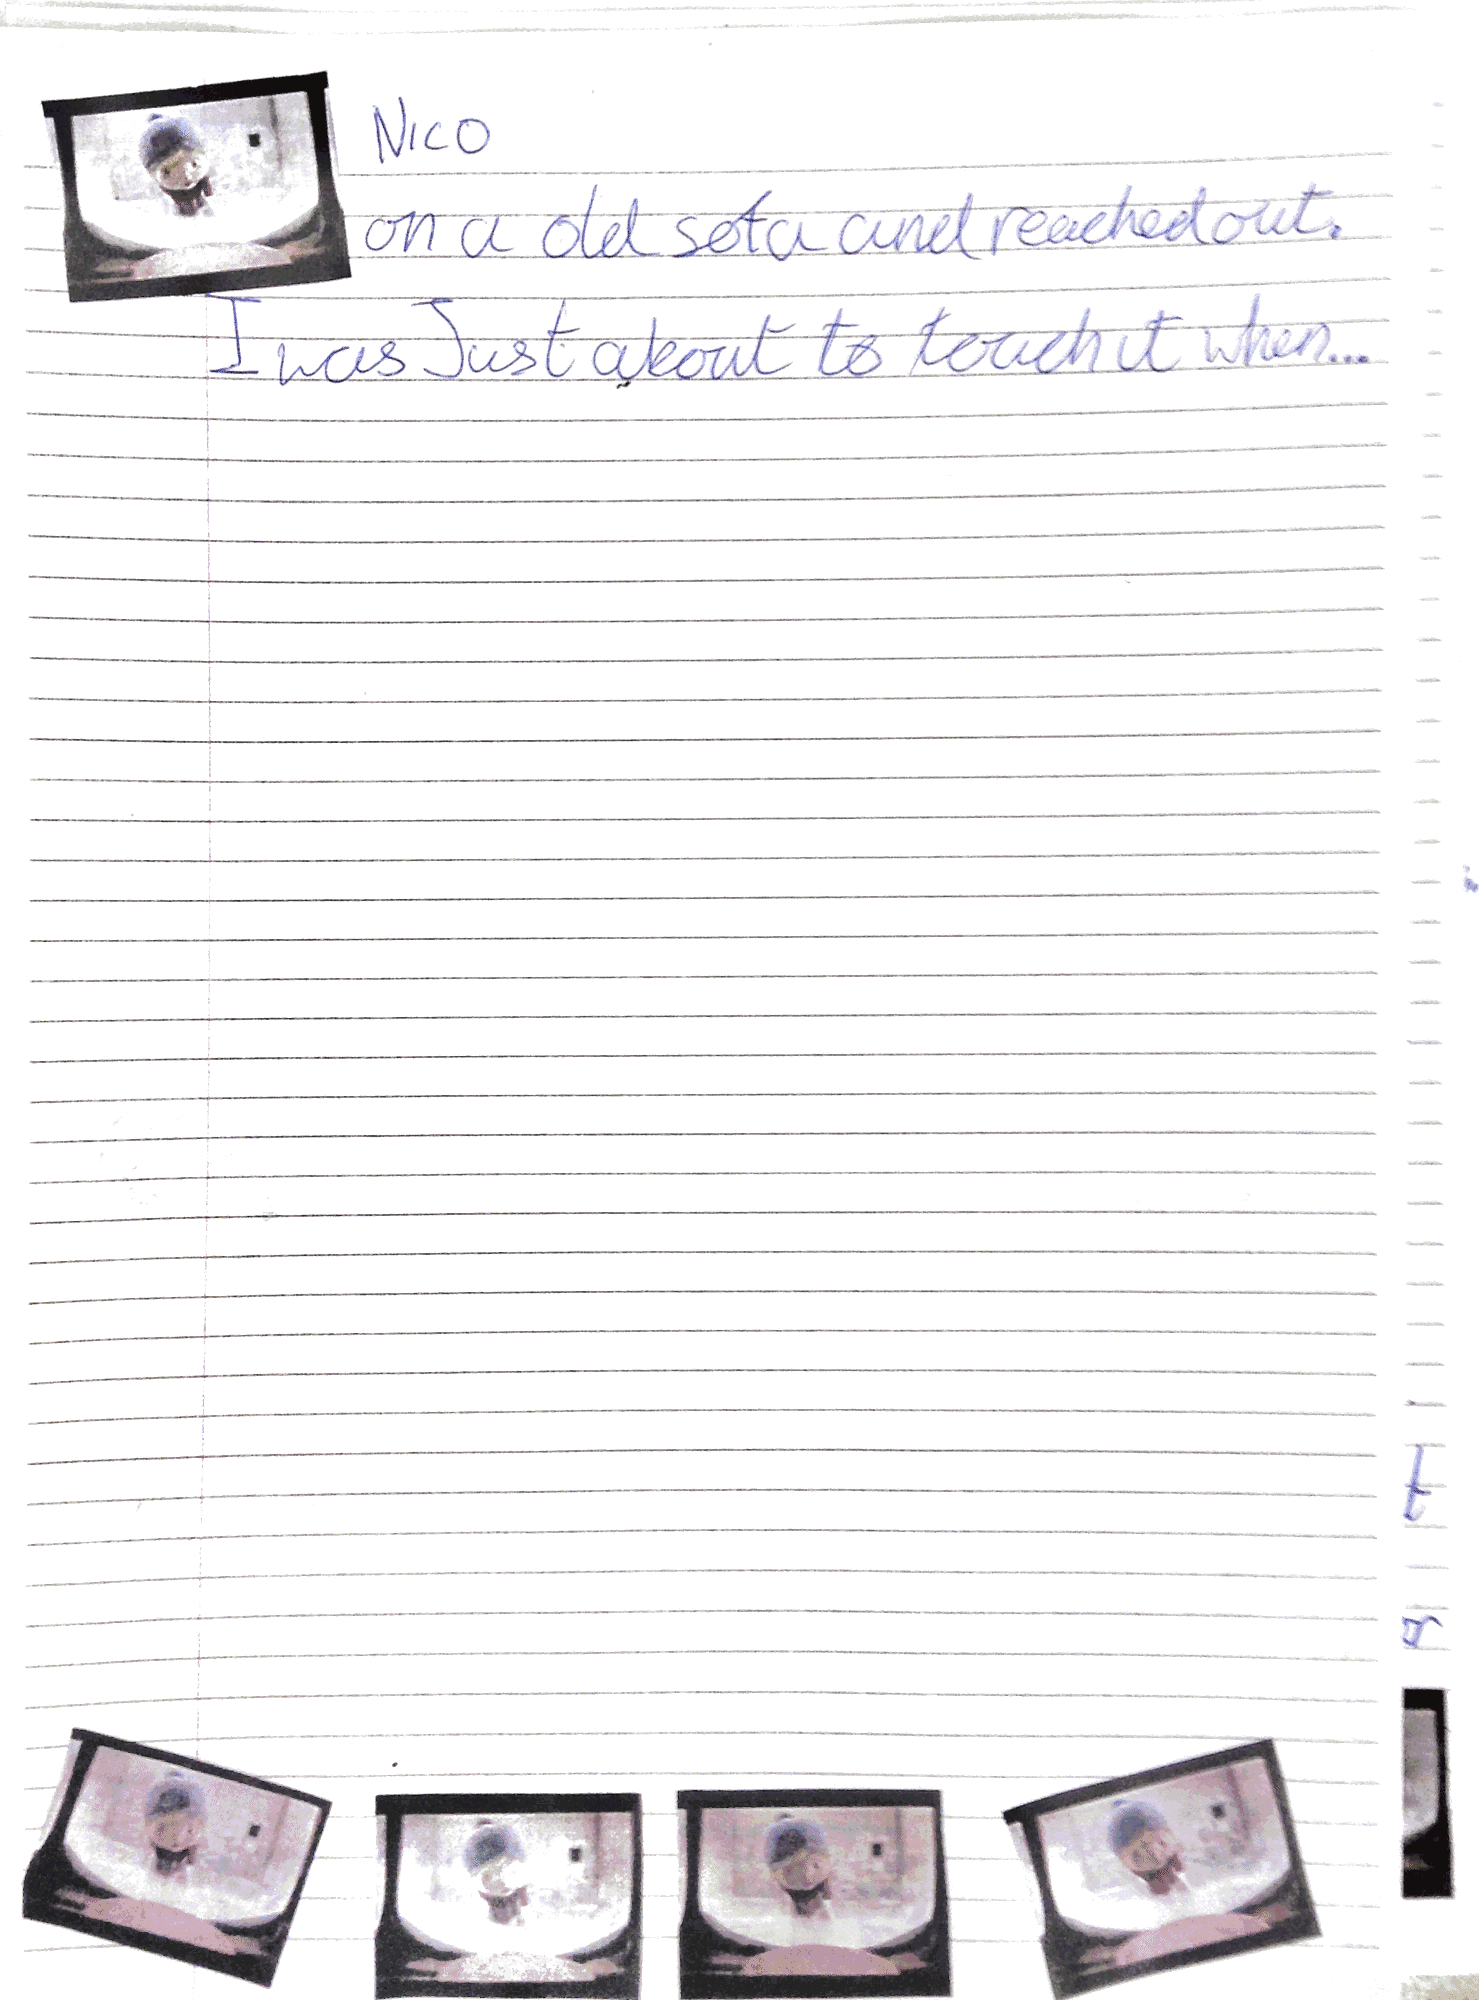 Nico
on a old sofa and reached out.
I was Just about to touch it when...